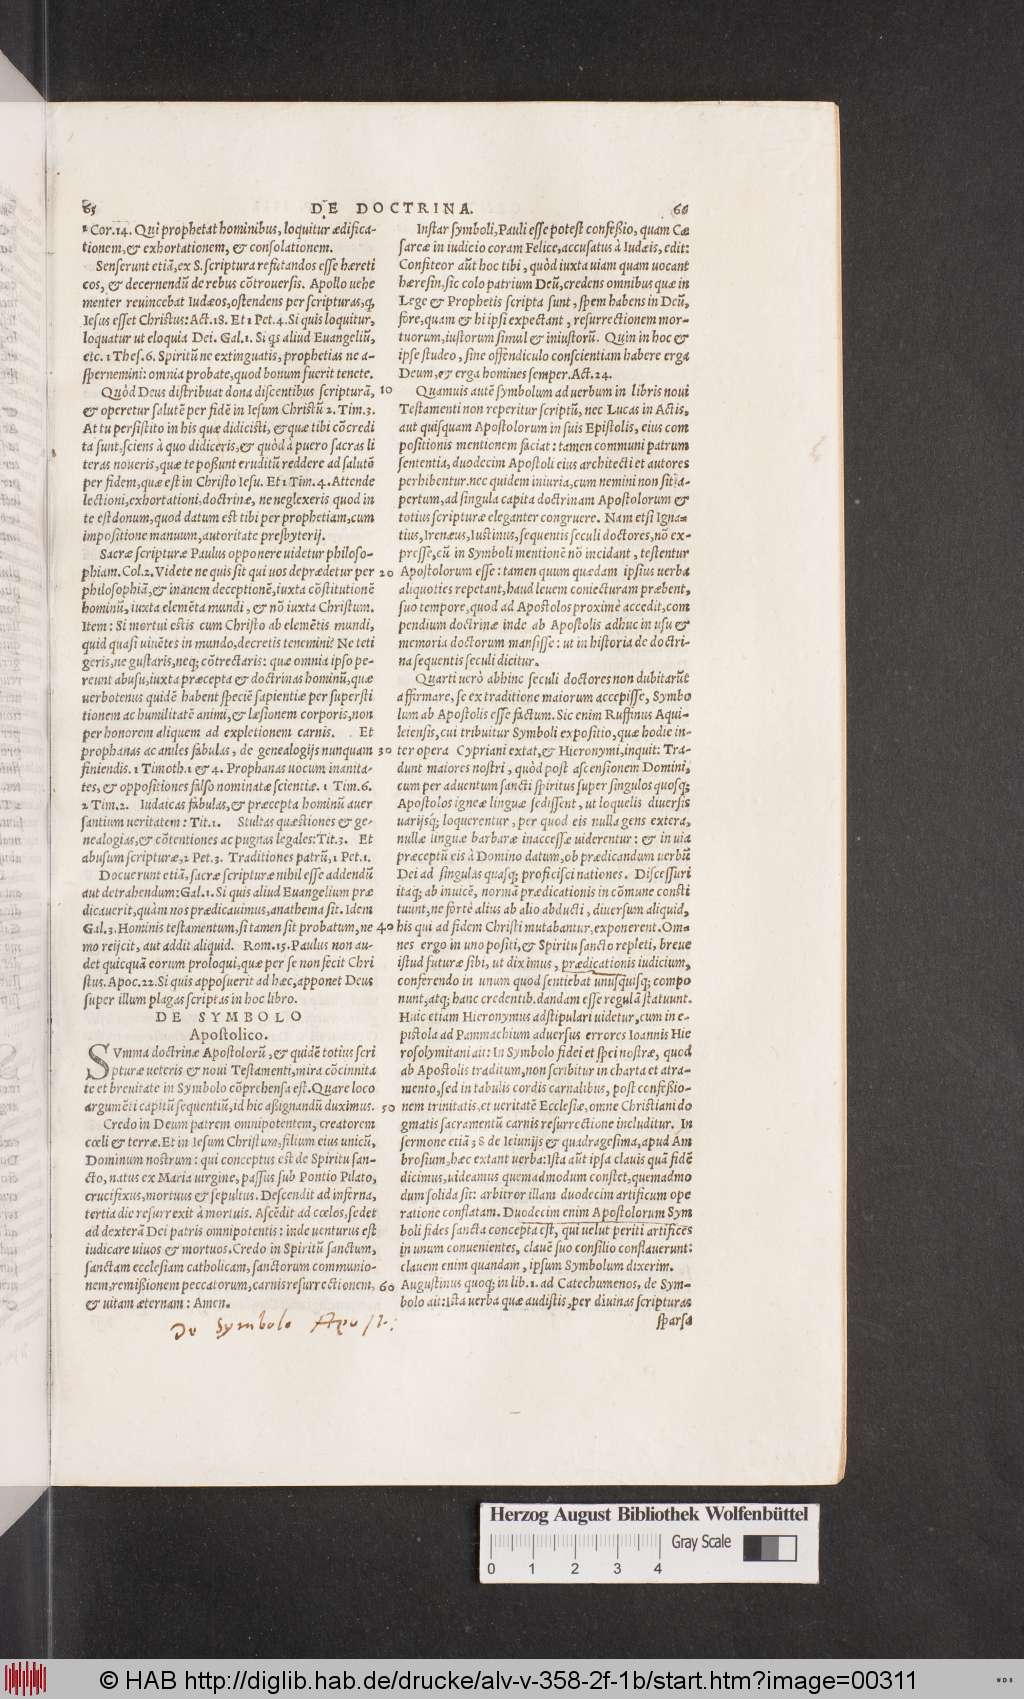 65
DE DOCTRINA.
66
1 Cor.14. Qui prophetat hominibus, loquitur ædifica-
tionem, & exhortationem, & consolationem.
Senserunt etiã, ex S. scriptura refutandos esse hæreti
cos, & decernendũ de rebus cõtrouersis. Apollo uehe
menter reuincebat Iudæos, ostendens per scripturas, q,
Iesus esset Christus: Act.18. Et 1 Pet.4. Si quis loquitur,
loquatur ut eloquia Dei. Gal.1. Si qs aliud Euangeliũ,
etc. 1 Thes.6. Spiritũ ne extinguatis, prophetias ne a-
spernemini: omnia probate, quod bonum fuerit tenete.
Quòd Deus distribuat dona discentibus scripturã, 10
& operetur salutẽ per fidẽ in Iesum Christũ 2. Tim.3.
At tu persistito in his quæ didicisti, & quæ tibi cõcredi
ta sunt, sciens à quo didiceris, & quòd à puero sacras li
teras noueris, quæ te possunt eruditũ reddere ad salutẽ
per fidem, quæ est in Christo Iesu. Et 1 Tim.4. Attende
lectioni, exhortationi, doctrinæ, ne neglexeris quod in
te est donum, quod datum est tibi per prophetiam, cum
impositione manuum, autoritate presbyterij.
Sacræ scripturæ Paulus opponere uidetur philoso-
phiam. Col.2. Videte ne quis sit qui uos deprædetur per 20
philosophiã, & inanem deceptionẽ, iuxta cõstitutionẽ
hominũ, iuxta elemẽta mundi, & nõ iuxta Christum.
Item: Si mortui estis cum Christo ab elemẽtis mundi,
quid quasi uiuẽtes in mundo, decretis tenemini? Ne teti
geris, ne gustaris, neq; cõtrectaris: quæ omnia ipso pe-
reunt abusu, iuxta præcepta & doctrinas hominũ, quæ
uerbotenus quidẽ habent speciẽ sapientiæ per supersti
tionem ac humilitatẽ animi, & læsionem corporis, non
per honorem aliquem ad expletionem carnis. Et
prophanas ac aniles fabulas, de genealogijs nunquam 30
finiendis. 1 Timoth.1 & 4. Prophanas uocum inanita-
tes, & oppositiones falso nominatæ scientiæ. 1 Tim.6.
2 Tim.2. Iudaicas fabulas, & præcepta hominũ auer
santium ueritatem: Tit.1. Stultas quæstiones & ge-
nealogias, & cõtentiones ac pugnas legales: Tit.3. Et
abusum scripturæ, 2 Pet.3. Traditiones patrũ, 1 Pet.1.
Docuerunt etiã, sacræ scripturæ nihil esse addendũ
aut detrahendum: Gal.1. Si quis aliud Euangelium præ
dicauerit, quàm nos prædicauimus, anathema sit. Idem
Gal.3. Hominis testamentum, si tamen sit probatum, ne 40
mo reijcit, aut addit aliquid. Rom.15. Paulus non au-
det quicquã eorum proloqui, quæ per se non fecit Chri
stus. Apoc.22. Si quis apposuerit ad hæc, apponet Deus
super illum plagas scriptas in hoc libro.
DE SYMBOLO
Apostolico.
SVmma doctrinæ Apostolorũ, & quidẽ totius scri
pturæ ueteris & noui Testamenti, mira cõcinnita
te et breuitate in Symbolo cõprehensa est. Quare loco
argumẽti capitũ sequentiũ, id hic assignandũ duximus. 50
Credo in Deum patrem omnipotentem, creatorem
cœli & terræ. Et in Iesum Christum, filium eius unicũ,
Dominum nostrum: qui conceptus est de Spiritu san-
cto, natus ex Maria uirgine, passus sub Pontio Pilato,
crucifixus, mortuus & sepultus. Descendit ad inferna,
tertia die resurrexit à mortuis. Ascẽdit ad cœlos, sedet
ad dexterã Dei patris omnipotentis: inde uenturus est
iudicare uiuos & mortuos. Credo in Spiritũ sanctum,
sanctam ecclesiam catholicam, sanctorum communio-
nem, remissionem peccatorum, carnis resurrectionem, 60
& uitam æternam: Amen.
De Symbolo Apost:
Instar symboli, Pauli esse potest confessio, quam Cæ
sareæ in iudicio coram Felice, accusatus à Iudæis, edit:
Confiteor aũt hoc tibi, quòd iuxta uiam quam uocant
hæresin, sic colo patrium Deũ, credens omnibus quæ in
Lege & Prophetis scripta sunt, spem habens in Deũ,
fore, quam & hi ipsi expectant, resurrectionem mor-
tuorum, iustorum simul & iniustorũ. Quin in hoc &
ipse studeo, sine offendiculo conscientiam habere erga
Deum, & erga homines semper. Act.24.
Quamuis autẽ symbolum ad uerbum in libris noui
Testamenti non reperitur scriptũ, nec Lucas in Actis,
aut quisquam Apostolorum in suis Epistolis, eius com
positionis mentionem faciat: tamen communi patrum
sententia, duodecim Apostoli eius architecti et autores
perhibentur. nec quidem iniuria, cum nemini non sit a-
pertum, ad singula capita doctrinam Apostolorum &
totius scripturæ eleganter congruere. Nam etsi Igna-
tius, Irenæus, Iustinus, sequentis seculi doctores, nõ ex-
presse, cũ in Symboli mentionẽ nõ incidant, testentur
Apostolorum esse: tamen quum quædam ipsius uerba
aliquoties repetant, haud leuem coniecturam præbent,
suo tempore, quod ad Apostolos proximè accedit, com
pendium doctrinæ inde ab Apostolis adhuc in usu &
memoria doctorum mansisse: ut in historia de doctri-
na sequentis seculi dicitur.
Quarti uerò abhinc seculi doctores non dubitarũt
affirmare, se ex traditione maiorum accepisse, Symbo
lum ab Apostolis esse factum. Sic enim Ruffinus Aqui-
leiensis, cui tribuitur Symboli expositio, quæ hodie in-
ter opera Cypriani extat, & Hieronymi, inquit: Tra-
dunt maiores nostri, quòd post ascensionem Domini,
cum per aduentum sancti spiritus super singulos quosq;
Apostolos igneæ linguæ sedissent, ut loquelis diuersis
uarijsq; loquerentur, per quod eis nulla gens extera,
nullæ linguæ barbaræ inaccessæ uiderentur: & in uia
præceptũ eis à Domino datum, ob prædicandum uerbũ
Dei ad singulas quasq; proficisci nationes. Discessuri
itaq; ab inuicẽ, normã prædicationis in cõmune consti
tuunt, ne fortè alius ab alio abducti, diuersum aliquid,
his qui ad fidem Christi mutabantur, exponerent. Om-
nes ergo in uno positi, & Spiritu sancto repleti, breue
istud futuræ sibi, ut diximus, prædicationis iudicium,
conferendo in unum quod sentiebat unusquisq; compo
nunt, atq; hanc credentib. dandam esse regulã statuunt.
Huic etiam Hieronymus adstipulari uidetur, cum in e-
pistola ad Pammachium aduersus errores Ioannis Hie
rosolymitani ait: In Symbolo fidei et spei nostræ, quod
ab Apostolis traditum, non scribitur in charta et atra-
mento, sed in tabulis cordis carnalibus, post confessio-
nem trinitatis, et ueritatẽ Ecclesiæ, omne Christiani do
gmatis sacramentũ carnis resurrectione includitur. In
sermone etiã 38 de Ieiunijs & quadragesima, apud Am
brosium, hæc extant uerba: Ista aũt ipsa clauis quã fidẽ
dicimus, uideamus quemadmodum constet, quemadmo
dum solida sit: arbitror illam duodecim artificum ope
ratione conflatam. Duodecim enim Apostolorum Sym
boli fides sancta concepta est, qui uelut periti artifices
in unum conuenientes, clauẽ suo consilio conflauerunt:
clauem enim quandam, ipsum Symbolum dixerim.
Augustinus quoq; in lib.1. ad Catechumenos, de Sym-
bolo ait: Ista uerba quæ audistis, per diuinas scripturas
sparsa
Herzog August Bibliothek Wolfenbüttel
Gray Scale
0 1 2 3 4
© HAB http://diglib.hab.de/drucke/alv-v-358-2f-1b/start.htm?image=00311